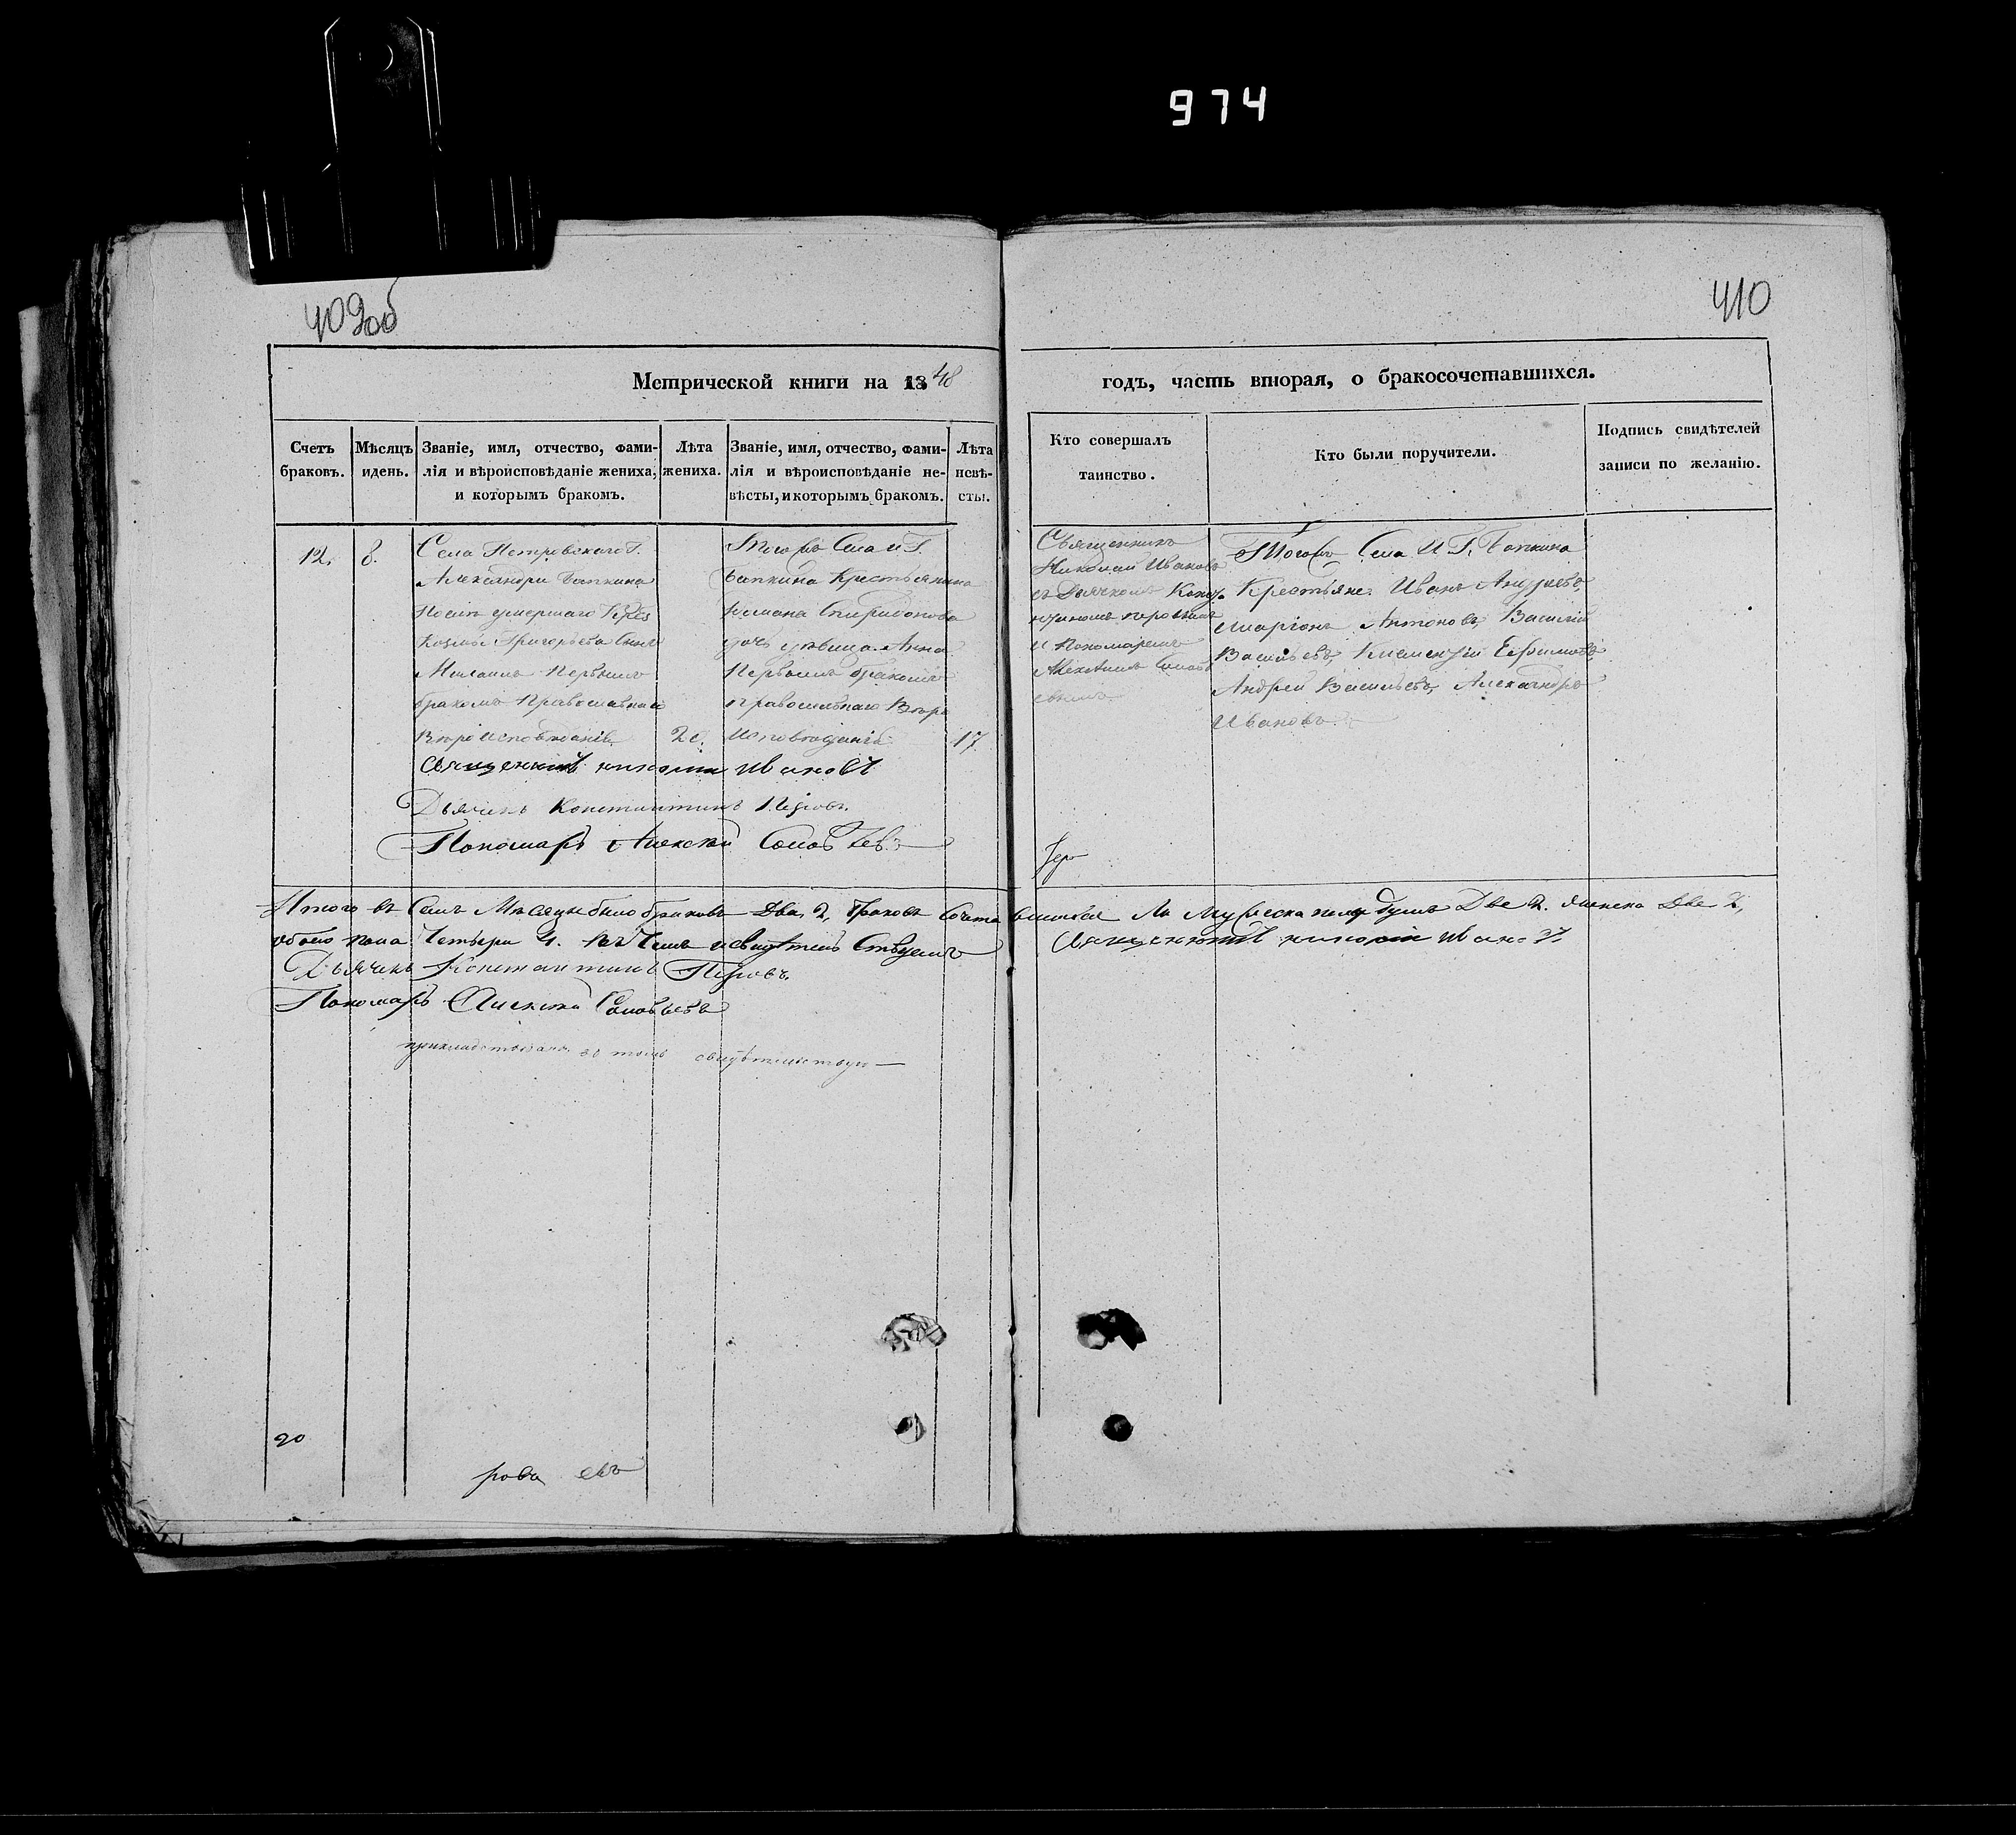 974
409об
410
Метрической книги на 1848
годъ, часть вторая, о бракосочетавшихся.
Счетъ браковъ.
Мѣсяцъ и день.
Званіе, имя, отчество, фами-
лія и вѣроисповѣданіе жениха,
и которымъ бракомъ.
Лѣта
жениха.
Званіе, имя, отчество, фами-
лія и вѣроисповѣданіе не-
вѣсты, и которымъ бракомъ.
Лѣта
невѣ-
сты.
Кто совершалъ
таинство.
Кто были поручители.
Подпись свидѣтелей
записи по желанію.
12.
8.
Села Петровскаго Г.
Александри Бапкина
умершаго Крес
Григорьева сынъ
Первымъ
бракомъ Православнаго
Вѣроисповѣданія
20.
Тогожъ Села и Г.
Бапкина Крестьянина
Романа Спиридонова
дочь дѣвица Анна
Первымъ бракомъ
православнаго Вѣро
Исповѣданія
17
Священникъ
Николай Ивановъ
съ Дьячкомъ Конст
Петровымъ
и Пономаремъ
Алексѣемъ Соловь
евымъ
Тогожъ Села И Г. Бапкина
Крестьяне Иванъ Андреевъ,
Ларіонъ Антоновъ, Василій
Васильевъ, Климентій Ефимовъ,
Андрей Васильевъ, Александръ
Ивановъ.
Священникъ Николай Ивановъ
Дьячекъ Константинъ Петровъ.
Пономарь Алексѣй Соловьевъ
Итого въ Семъ Мѣсяцѣ было браковъ Два, 2, браковъ Сочетавшихся Мужеска пола душъ Две 2. Женска Две 2,
обоего пола Четыри 4. въ Чемъ и свидѣтельствуемъ
Священникъ Николай Ивановъ
Дьячекъ Константинъ Петровъ.
Пономарь Алексѣй Соловьевъ
въ томъ свидѣтельствую
20
рова евъ